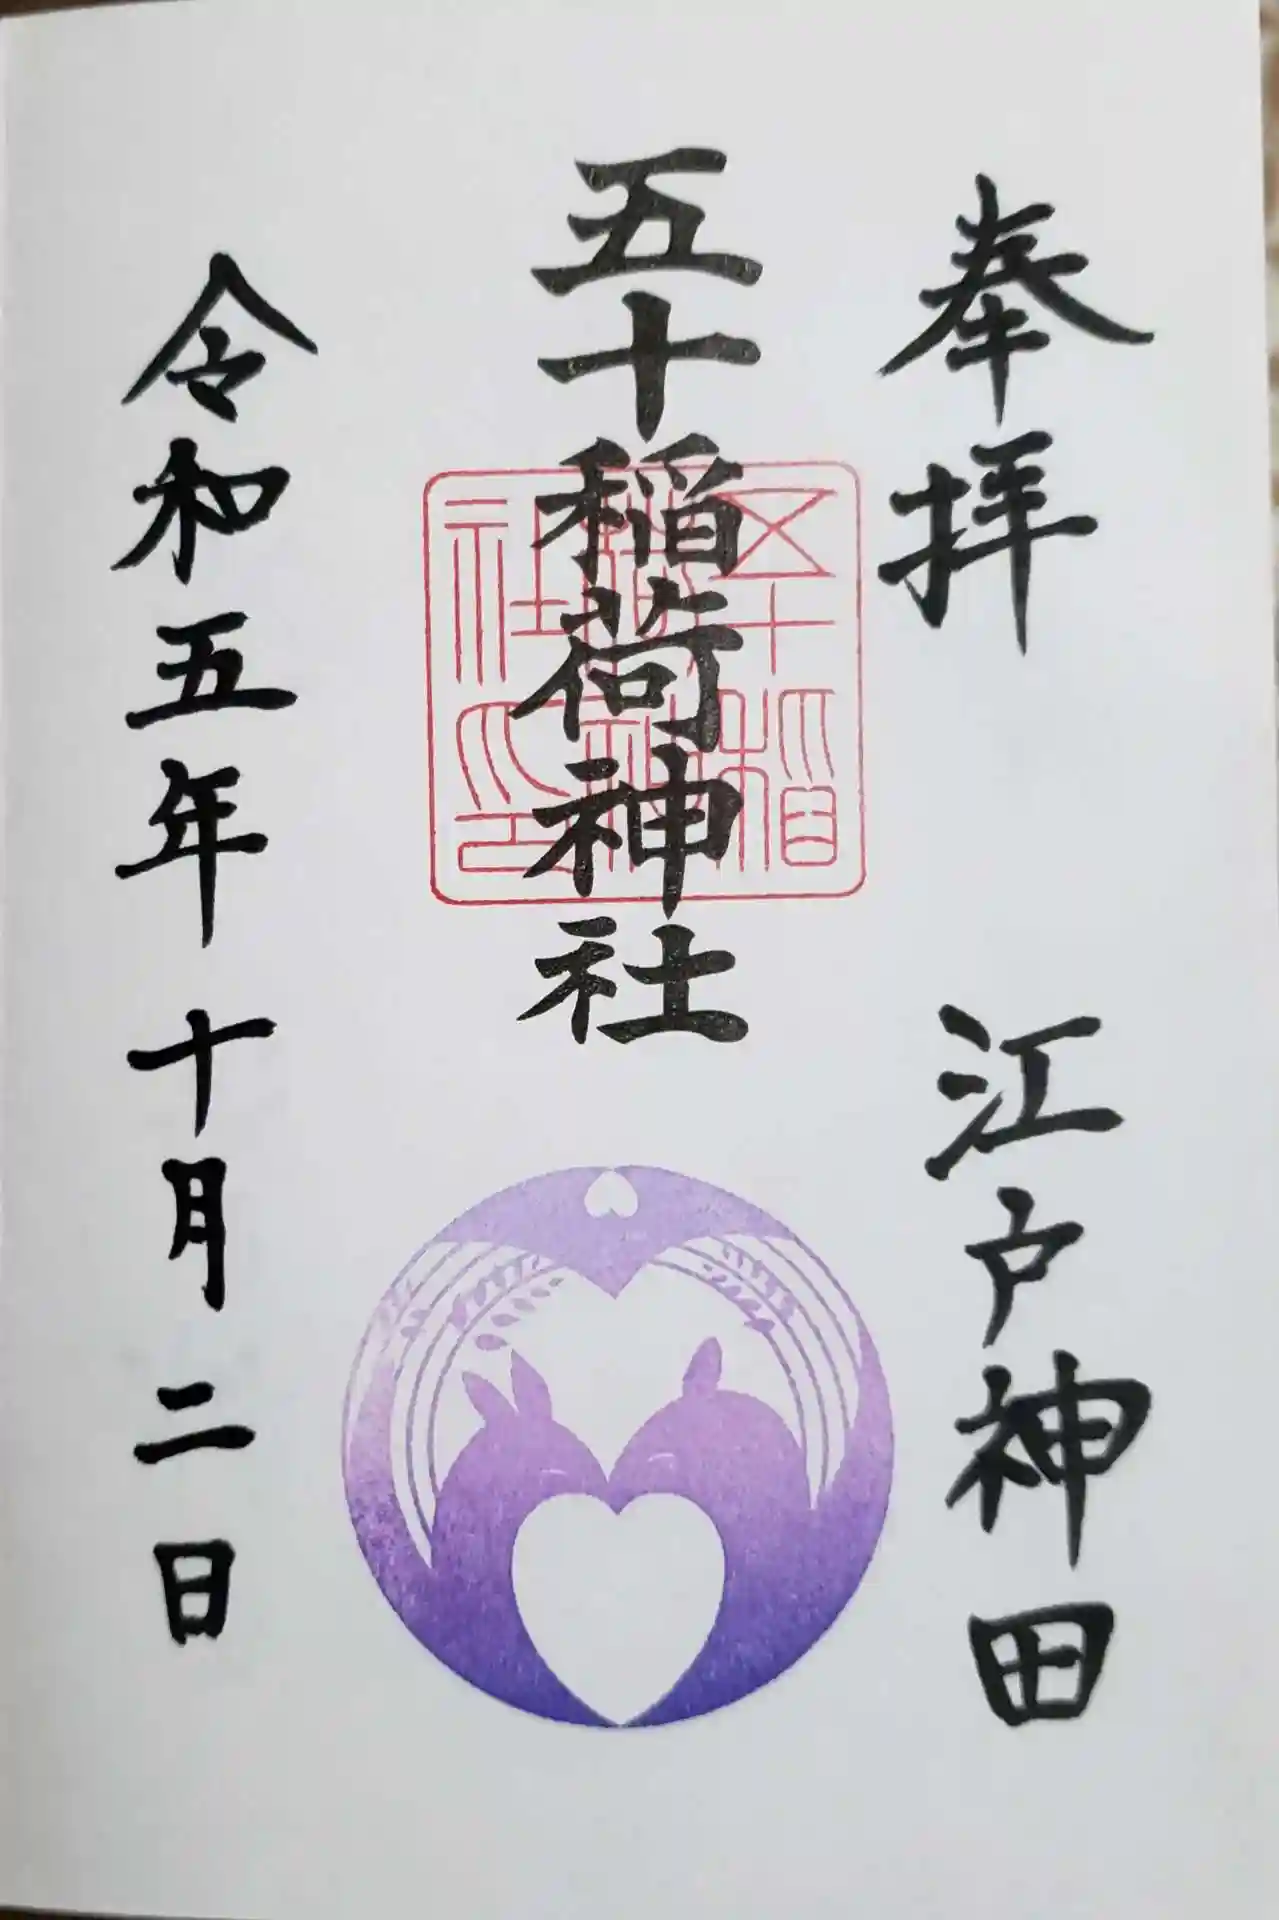 奉拝 江戸神田
五十稲荷神社
五十稲荷神社印
令和五年十月二日